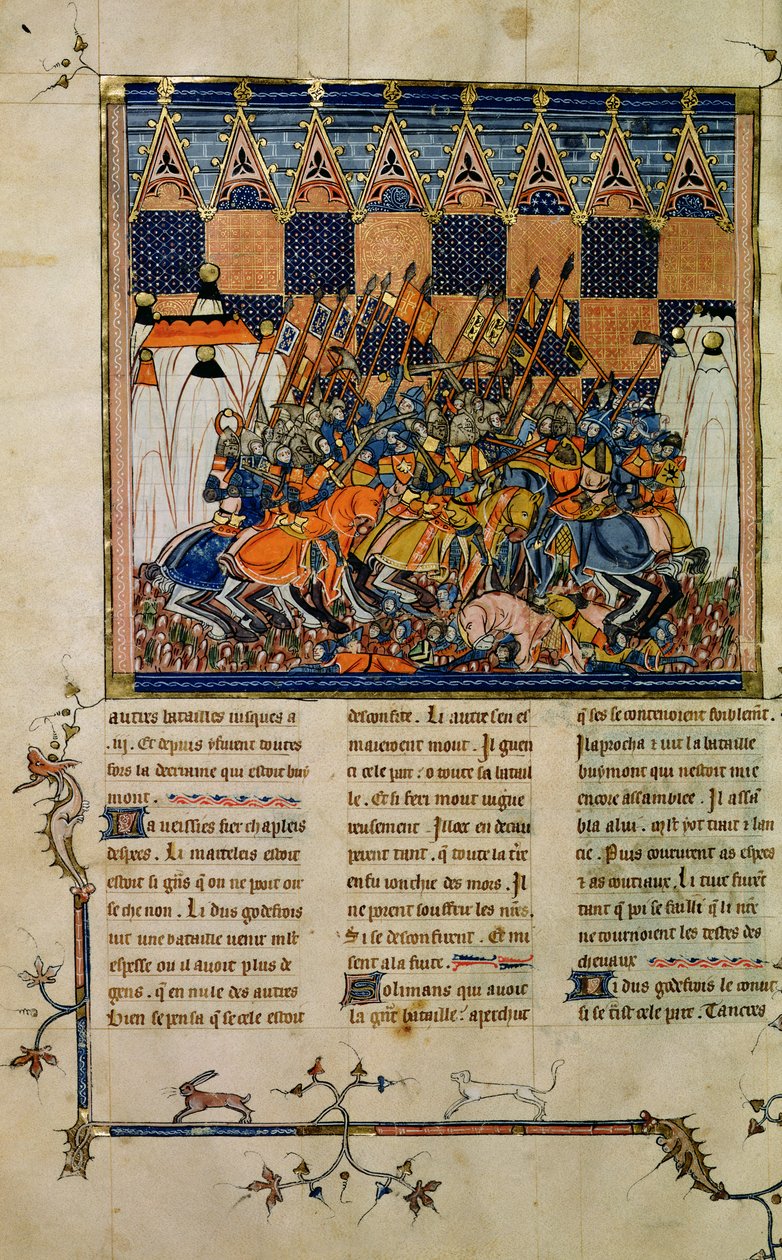 autres batailles iusques a
.iij. Et depuis yfurent toutes
fors la derraine qui estoit buy
mont.
La veissies fier chapleis
despees. Li marteleis estoit
estoit si gñs q̃ on ne poit oir
se che non. Li dus godefrois
uit une bataille uenir mlt
espesse ou il auoit plus de
gens. q̃ en nule des autres
bien se pensa q̃ se cele estoit
desconfite. Li autre sen es
maieroient mout. Il guen
ci cele part: o toute sa batail
le. Et si feri mout uigue
reusement. Illoec en
tant. q̃ toute la tr̃e
en fu ionchie des mors. Il
ne porent souffrir les nr̃es.
Si se desconfirent. Et mi
sent a la fuite.
Solimans qui auoit
la gñt bataille: aperchut
q̃ ses se contenoient foiblem̃t.
Il aprocha ⁊ uit la bataille
buymont qui nestoit mie
encore assamblee. Il assã
bla a lui. mlt yot trait ⁊ lan
cie. Puis coururent as espees
⁊ as coutiaux. Li turc furẽt
tant q̃ poi se failli q̃ li nr̃e
ne tournoient les testes des
cheuaux
Li dus godefrois le
si se cele part. Tancres